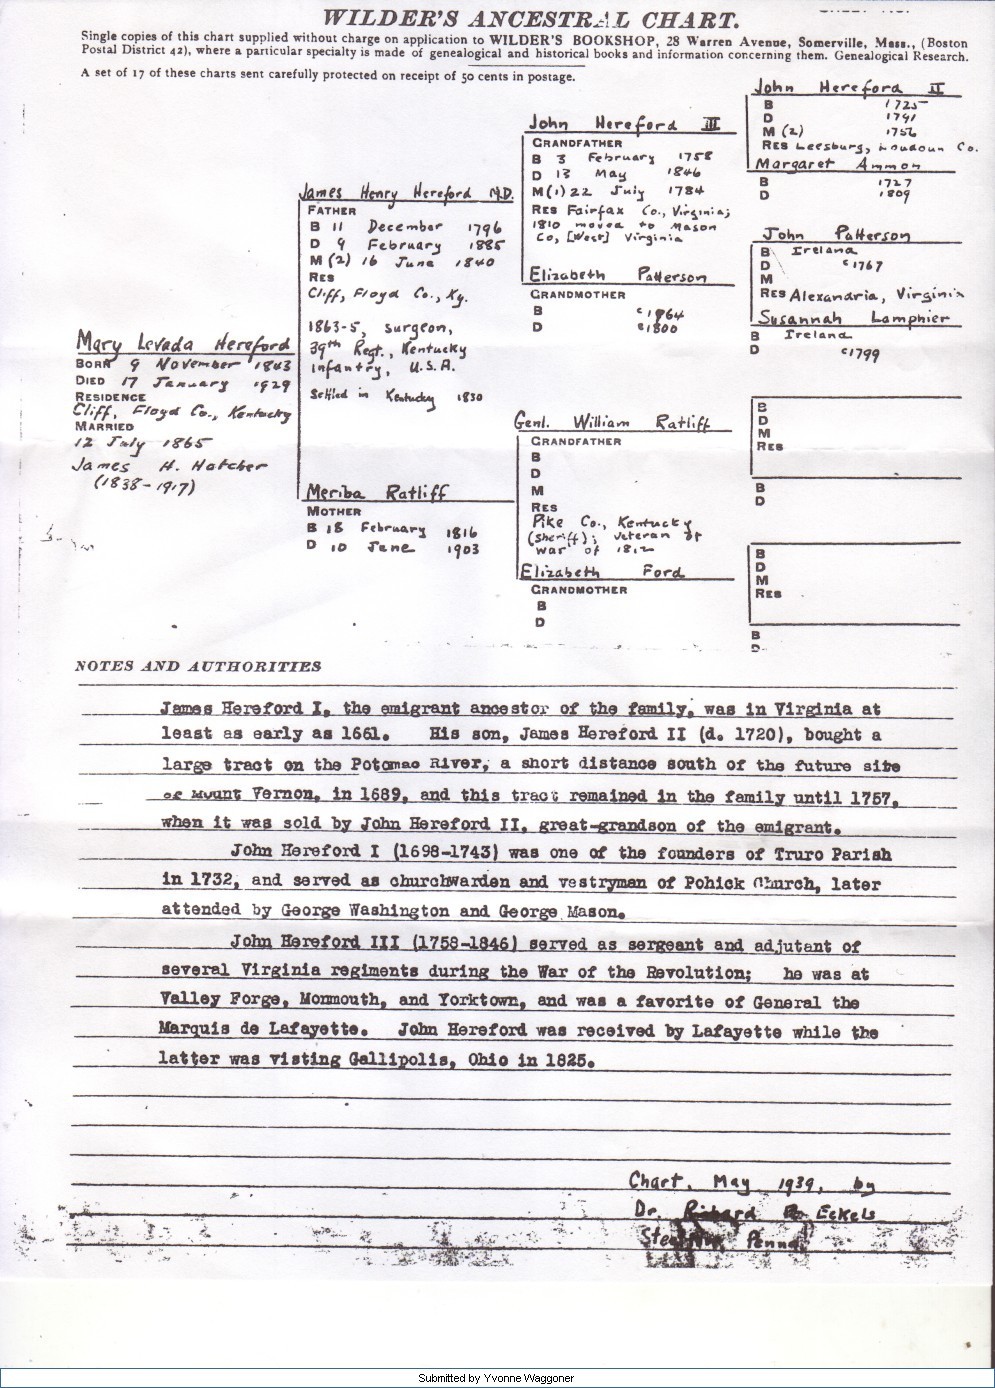 WILDER'S ANCESTRAL CHART.
Single copies of this chart supplied without charge on application to WILDER'S BOOKSHOP, 28 Warren Avenue, Somerville, Mass., (Boston
Postal District 42), where a particular specialty is made of genealogical and historical books and information concerning them. Genealogical Research.
A set of 17 of these charts sent carefully protected on receipt of 50 cents in postage.
Mary Levada Hereford
BORN 9 November 1843
DIED 17 January 1929
RESIDENCE
Cliff, Floyd Co., Kentucky
MARRIED
12 July 1865
James H. Hatcher
(1838-1917)
James Henry Hereford M.D.
FATHER
B 11 December 1796
D 9 February 1885
M (2) 16 June 1840
RES
Cliff, Floyd Co., Ky.
1863-5, surgeon,
39th Regt., Kentucky
infantry, U.S.A.
Settled in Kentucky 1830
Meriba Ratliff
MOTHER
B 18 February 1816
D 10 June 1903
John Hereford III
GRANDFATHER
B 3 February 1758
D 13 May 1846
M (1) 22 July 1784
RES Fairfax Co., Virginia;
1810 moved to Mason
Co, [West] Virginia
Elizabeth Patterson
GRANDMOTHER
B
D c1800
Genl. William Ratliff
GRANDFATHER
B
D
M
RES
Pike Co., Kentucky
(sheriff); veteran of
war of 1812
Elizabeth Ford
GRANDMOTHER
B
D
John Hereford II
B 1725
D 1791
M (2) 1756
RES Leesburg, Loudoun Co.
Margaret Ammon
B 1727
D 1809
John Patterson
B Ireland
D c1767
M
RES Alexandria, Virginia
Susannah Lamphier
B Ireland
D c1799
B
D
M
RES
B
D
B
D
M
RES
B
D
NOTES AND AUTHORITIES
James Hereford I, the emigrant ancestor of the family, was in Virginia at
least as early as 1661. His son, James Hereford II (d. 1720), bought a
large tract on the Potomac River, a short distance south of the future site
of Mount Vernon, in 1689, and this tract remained in the family until 1757,
when it was sold by John Hereford II, great-grandson of the emigrant.
John Hereford I (1698-1743) was one of the founders of Truro Parish
in 1732, and served as churchwarden and vestryman of Pohick Church, later
attended by George Washington and George Mason.
John Hereford III (1758-1846) served as sergeant and adjutant of
several Virginia regiments during the War of the Revolution; he was at
Valley Forge, Monmouth, and Yorktown, and was a favorite of General the
Marquis de Lafayette. John Hereford was received by Lafayette while the
latter was visting Gallipolis, Ohio in 1825.
Chart, May 1939, by
Dr. Richard Eckels
Penna.
Submitted by Yvonne Waggoner